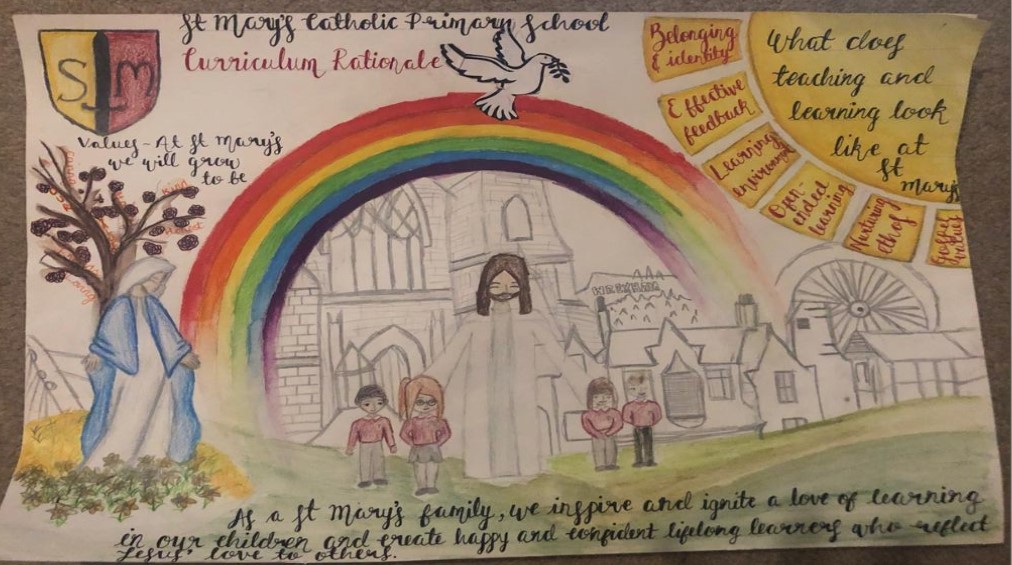 St Mary's Catholic Primary School
Curriculum Rationale
SM
Values - At St Mary's
we will grow
to be
Kind
Respect
Loving
Belonging
& identity
Effective
feedback
Learning
environment
Open-
ended
learning
Nurturing
Ethos
Gospel
values
What does
teaching and
learning look
like at
St
Mary's
As a St Mary's family, we inspire and ignite a love of learning
in our children and create happy and confident lifelong learners who reflect
Jesus' love to others.